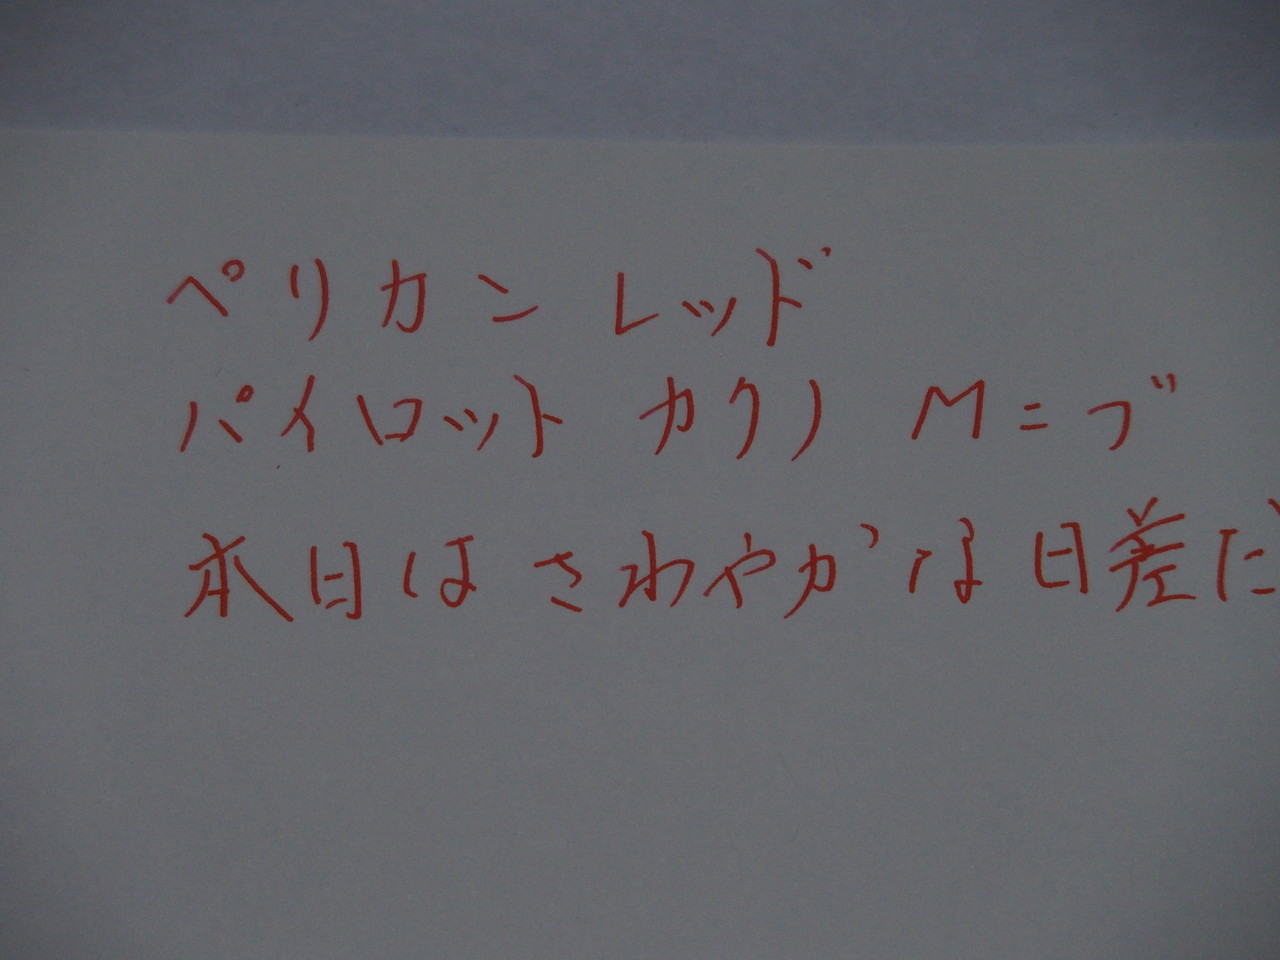 ペリカン レッド
パイロット カクノ M ニブ
本日はさわやかな日差